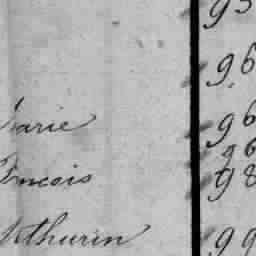 95
96
arie 96
96
ncois 98
thurin 99